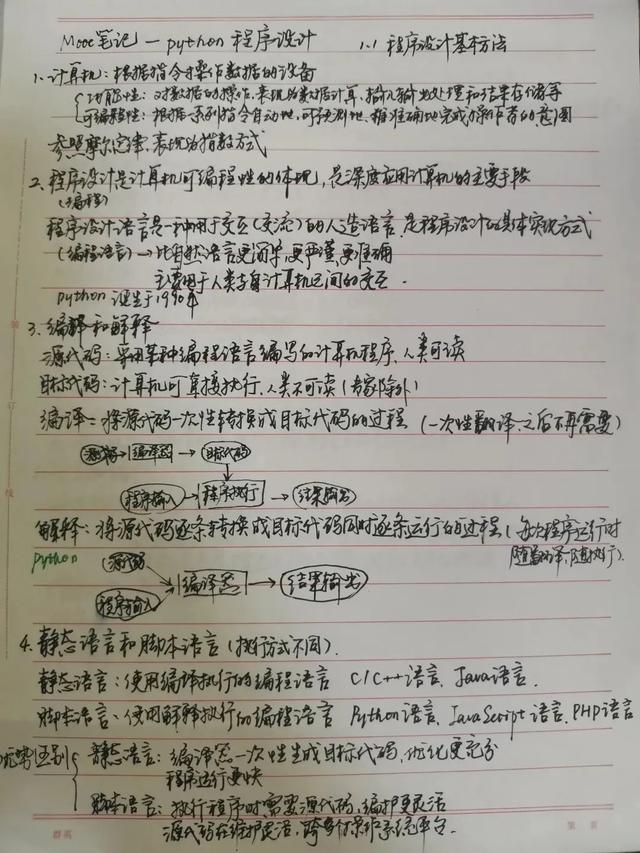 Mooc笔记 — python 程序设计 1.1 程序设计基本方法
1. 计算机：根据指令操作数据的设备
功能性：对数据的操作，表现为数据计算、输入输出处理和结果存储等
可编程性：根据一系列指令自动地、可预测地、准确地完成操作者的意图
参照摩尔定律，表现为指数方式
2. 程序设计是计算机可编程性的体现，是深度应用计算机的主要手段
(编程)
程序设计语言是一种用于交互(交流)的人造语言，是程序设计的具体实现方式
(编程语言) → 比自然语言更简单、更严谨、更准确
主要用于人类与计算机之间的交互．
python 诞生于1990年
3. 编译和解释
源代码：采用某种编程语言编写的计算机程序，人类可读
目标代码：计算机可直接执行，人类不可读（专家除外）
编译：将源代码一次性转换成目标代码的过程 （一次性翻译，之后不再需要）
源代码→编译器→目标代码
程序输入→程序执行→结果输出
解释：将源代码逐条转换成目标代码同时逐条运行的过程（每次程序运行时
python 源代码 随翻译，随执行）．
编译器→结果输出
程序输入
4. 静态语言和脚本语言（执行方式不同）．
静态语言：使用编译执行的编程语言 C/C++语言、Java语言．
脚本语言：使用解释执行的编程语言 Python语言、JavaScript语言、PHP语言
优势区别 静态语言：编译器一次性生成目标代码，优化更充分
程序运行更快
脚本语言：执行程序时需要源代码，维护更灵活
源代码在维护灵活，跨多个操作系统平台．